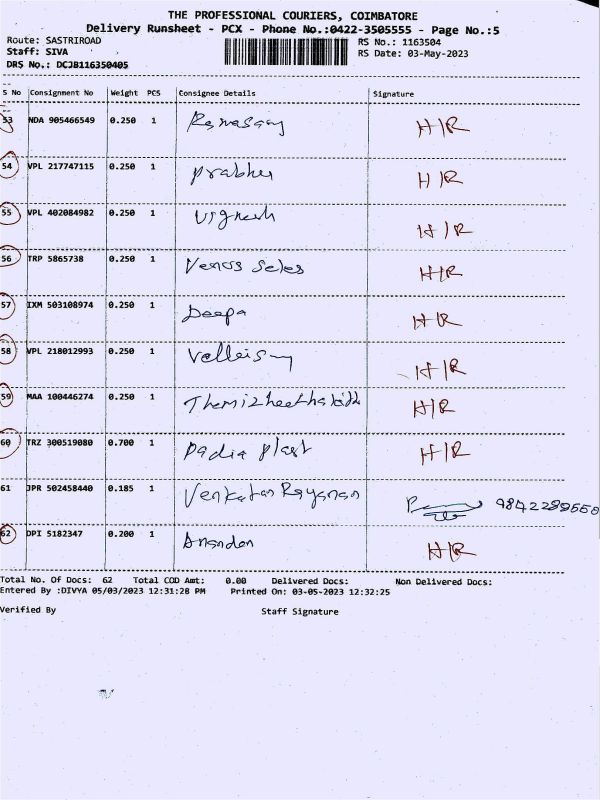 THE PROFESSIONAL COURIERS, COIMBATORE
Delivery Runsheet - PCX - Phone No.:0422-3505555 - Page No.:5
Route: SASTRIROAD RS No.: 1163504
Staff: SIVA RS Date: 03-May-2023
DRS No.: DCJB116350405
S No Consignment No Weight PCS Consignee Details Signature
53 NDA 905466549 0.250 1 Ramasamy H/R
54 VPL 217747115 0.250 1 Prabhu H/R
55 VPL 402084982 0.250 1 Vignesh H/R
56 TRP 5865738 0.250 1 Venus Sales H/R
57 IXM 503108974 0.250 1 Deepa H/R
58 VPL 218012993 0.250 1 H/R
59 MAA 100446274 0.250 1 H/R
60 TRZ 300519080 0.700 1 Padia Plast H/R
61 JPR 502458440 0.185 1 Venkatan Rayanan
62 DPI 5182347 0.200 1 Anandan H/R
Total No. Of Docs: 62 Total COD Amt: 0.00 Delivered Docs: Non Delivered Docs:
Entered By :DIVYA 05/03/2023 12:31:28 PM Printed On: 03-05-2023 12:32:25
Verified By Staff Signature